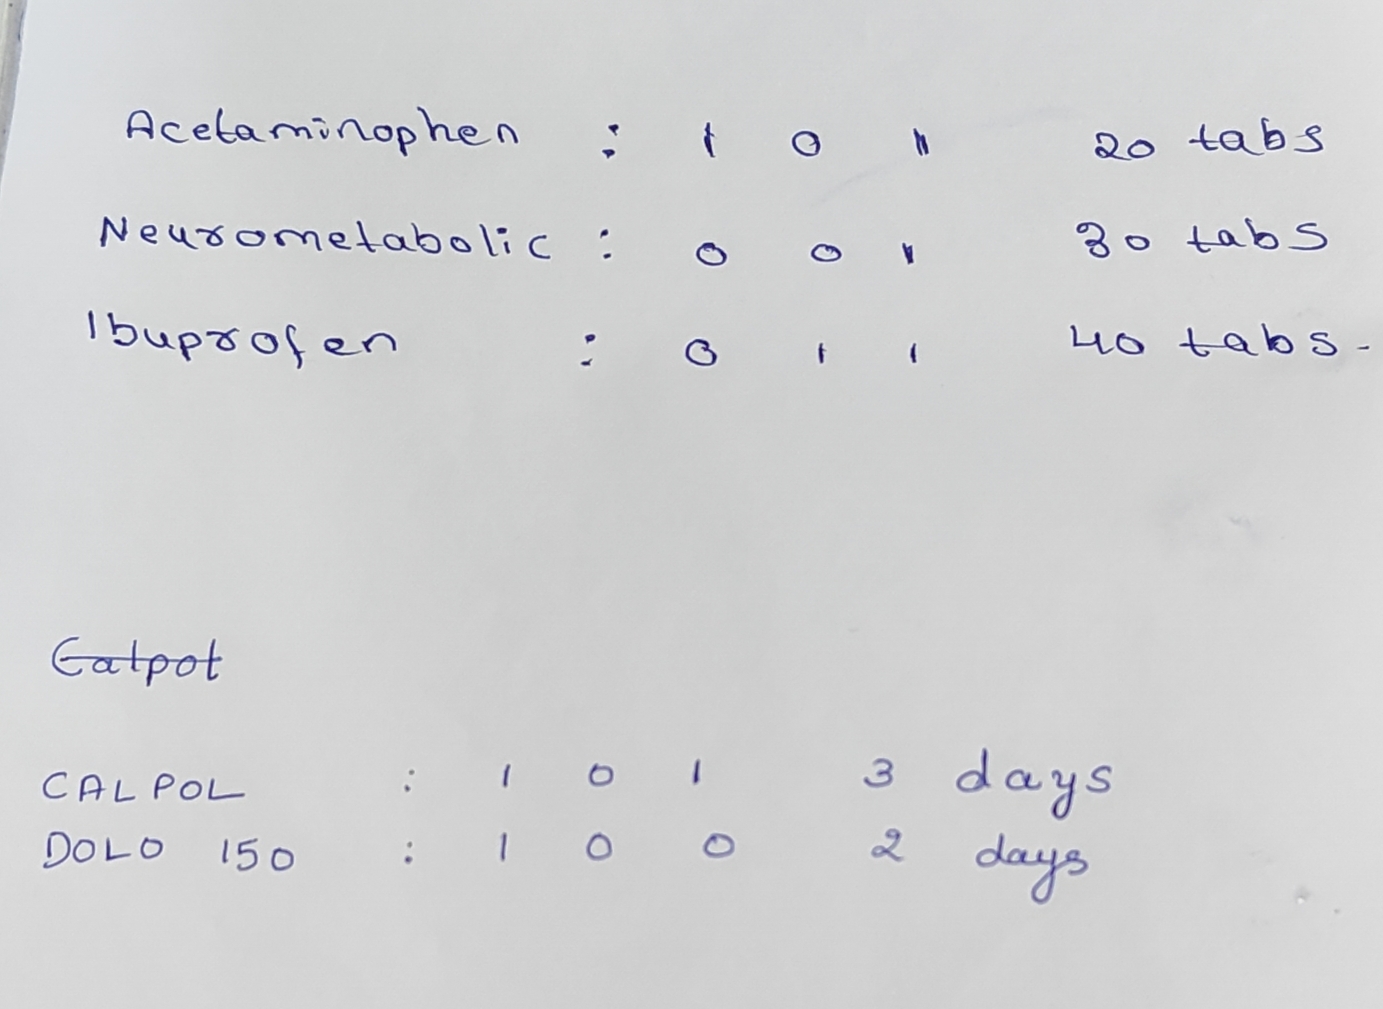 Acetaminophen : 1 0 1 20 tabs
Neurometabolic : 0 0 1 30 tabs
Ibuprofen : 0 1 1 40 tabs.
CALPOL : 1 0 1 3 days
DOLO 150 : 1 0 0 2 days